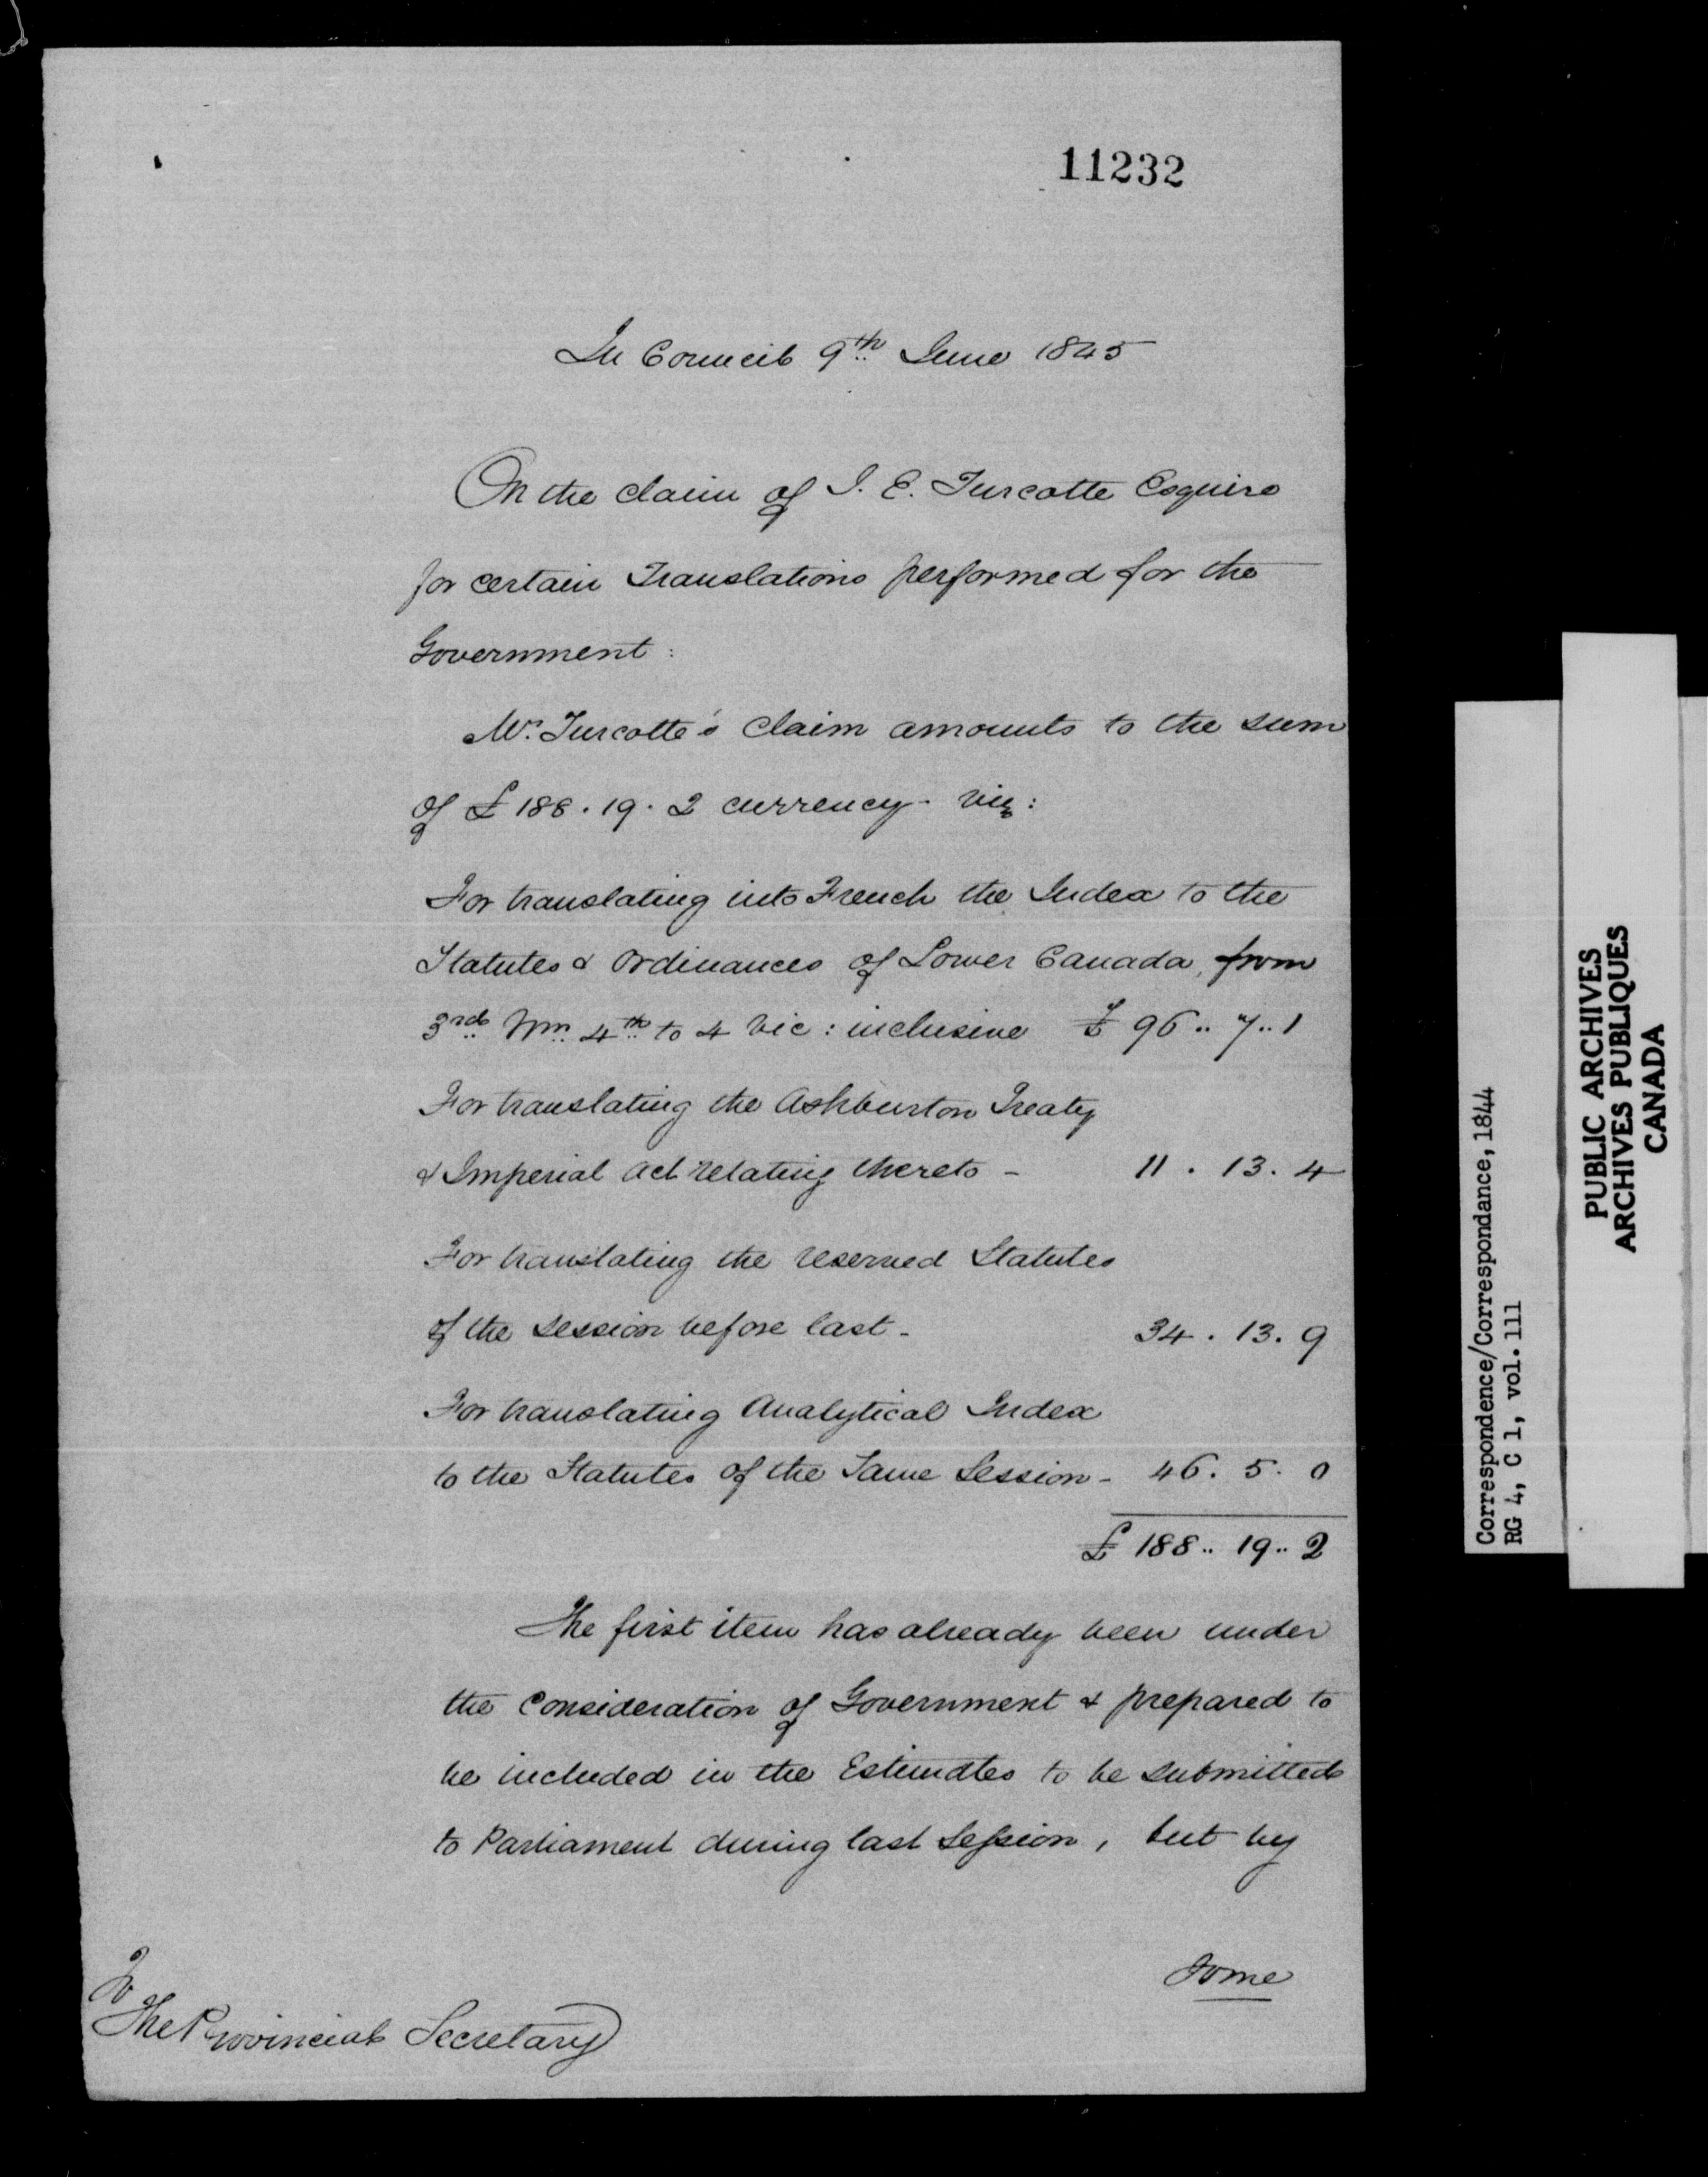 11232
In Council 9th June 1845
On the claim of J. E. Turcotte Esquire
for certain Translations performed for the
Government:
Mr. Turcotte's claim amounts to the sum
of £188.19.2 currency - viz:
For translating into French the Index to the
Statutes & Ordinances of Lower Canada, from
3rd Wm. 4th to 4 Vic: inclusive £ 96..7..1
For translating the Ashburton Treaty
& Imperial Act relating thereto - 11.13.4
For translating the reserved Statutes
of the Session before last - 34.13.9
For translating Analytical Index
to the Statutes of the Same Session - 46.5.0
£ 188..19..2
The first item has already been under
the Consideration of Government & prepared to
be included in the Estimates to be submitted
to Parliament during last Session, but by
some
To
The Provincial Secretary
Correspondence/Correspondance, 1844
RG 4, C 1, vol. 111
PUBLIC ARCHIVES
ARCHIVES PUBLIQUES
CANADA